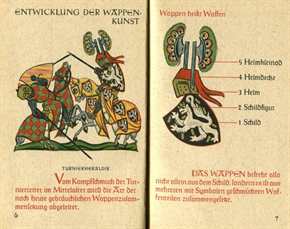 ENTWICKLUNG DER WAPPEN-
KUNST
TURNIERHERALDIK
Vom Kampfschmuck der Tur-
nierreiter im Mittelalter wird die Art der
noch heute gebräuchlichen Wappenzusam-
mensetzung abgeleitet.
6
Wappen heißt Waffen
5 Helmkleinod
4 Helmdecke
3 Helm
2 Schildfigur
1 Schild
DAS WAPPEN besteht also
nicht allein aus dem Schild, sondern es ist aus
mehreren mit Symbolen geschmückten Waf-
fenteilen zusammengesetzt.
7